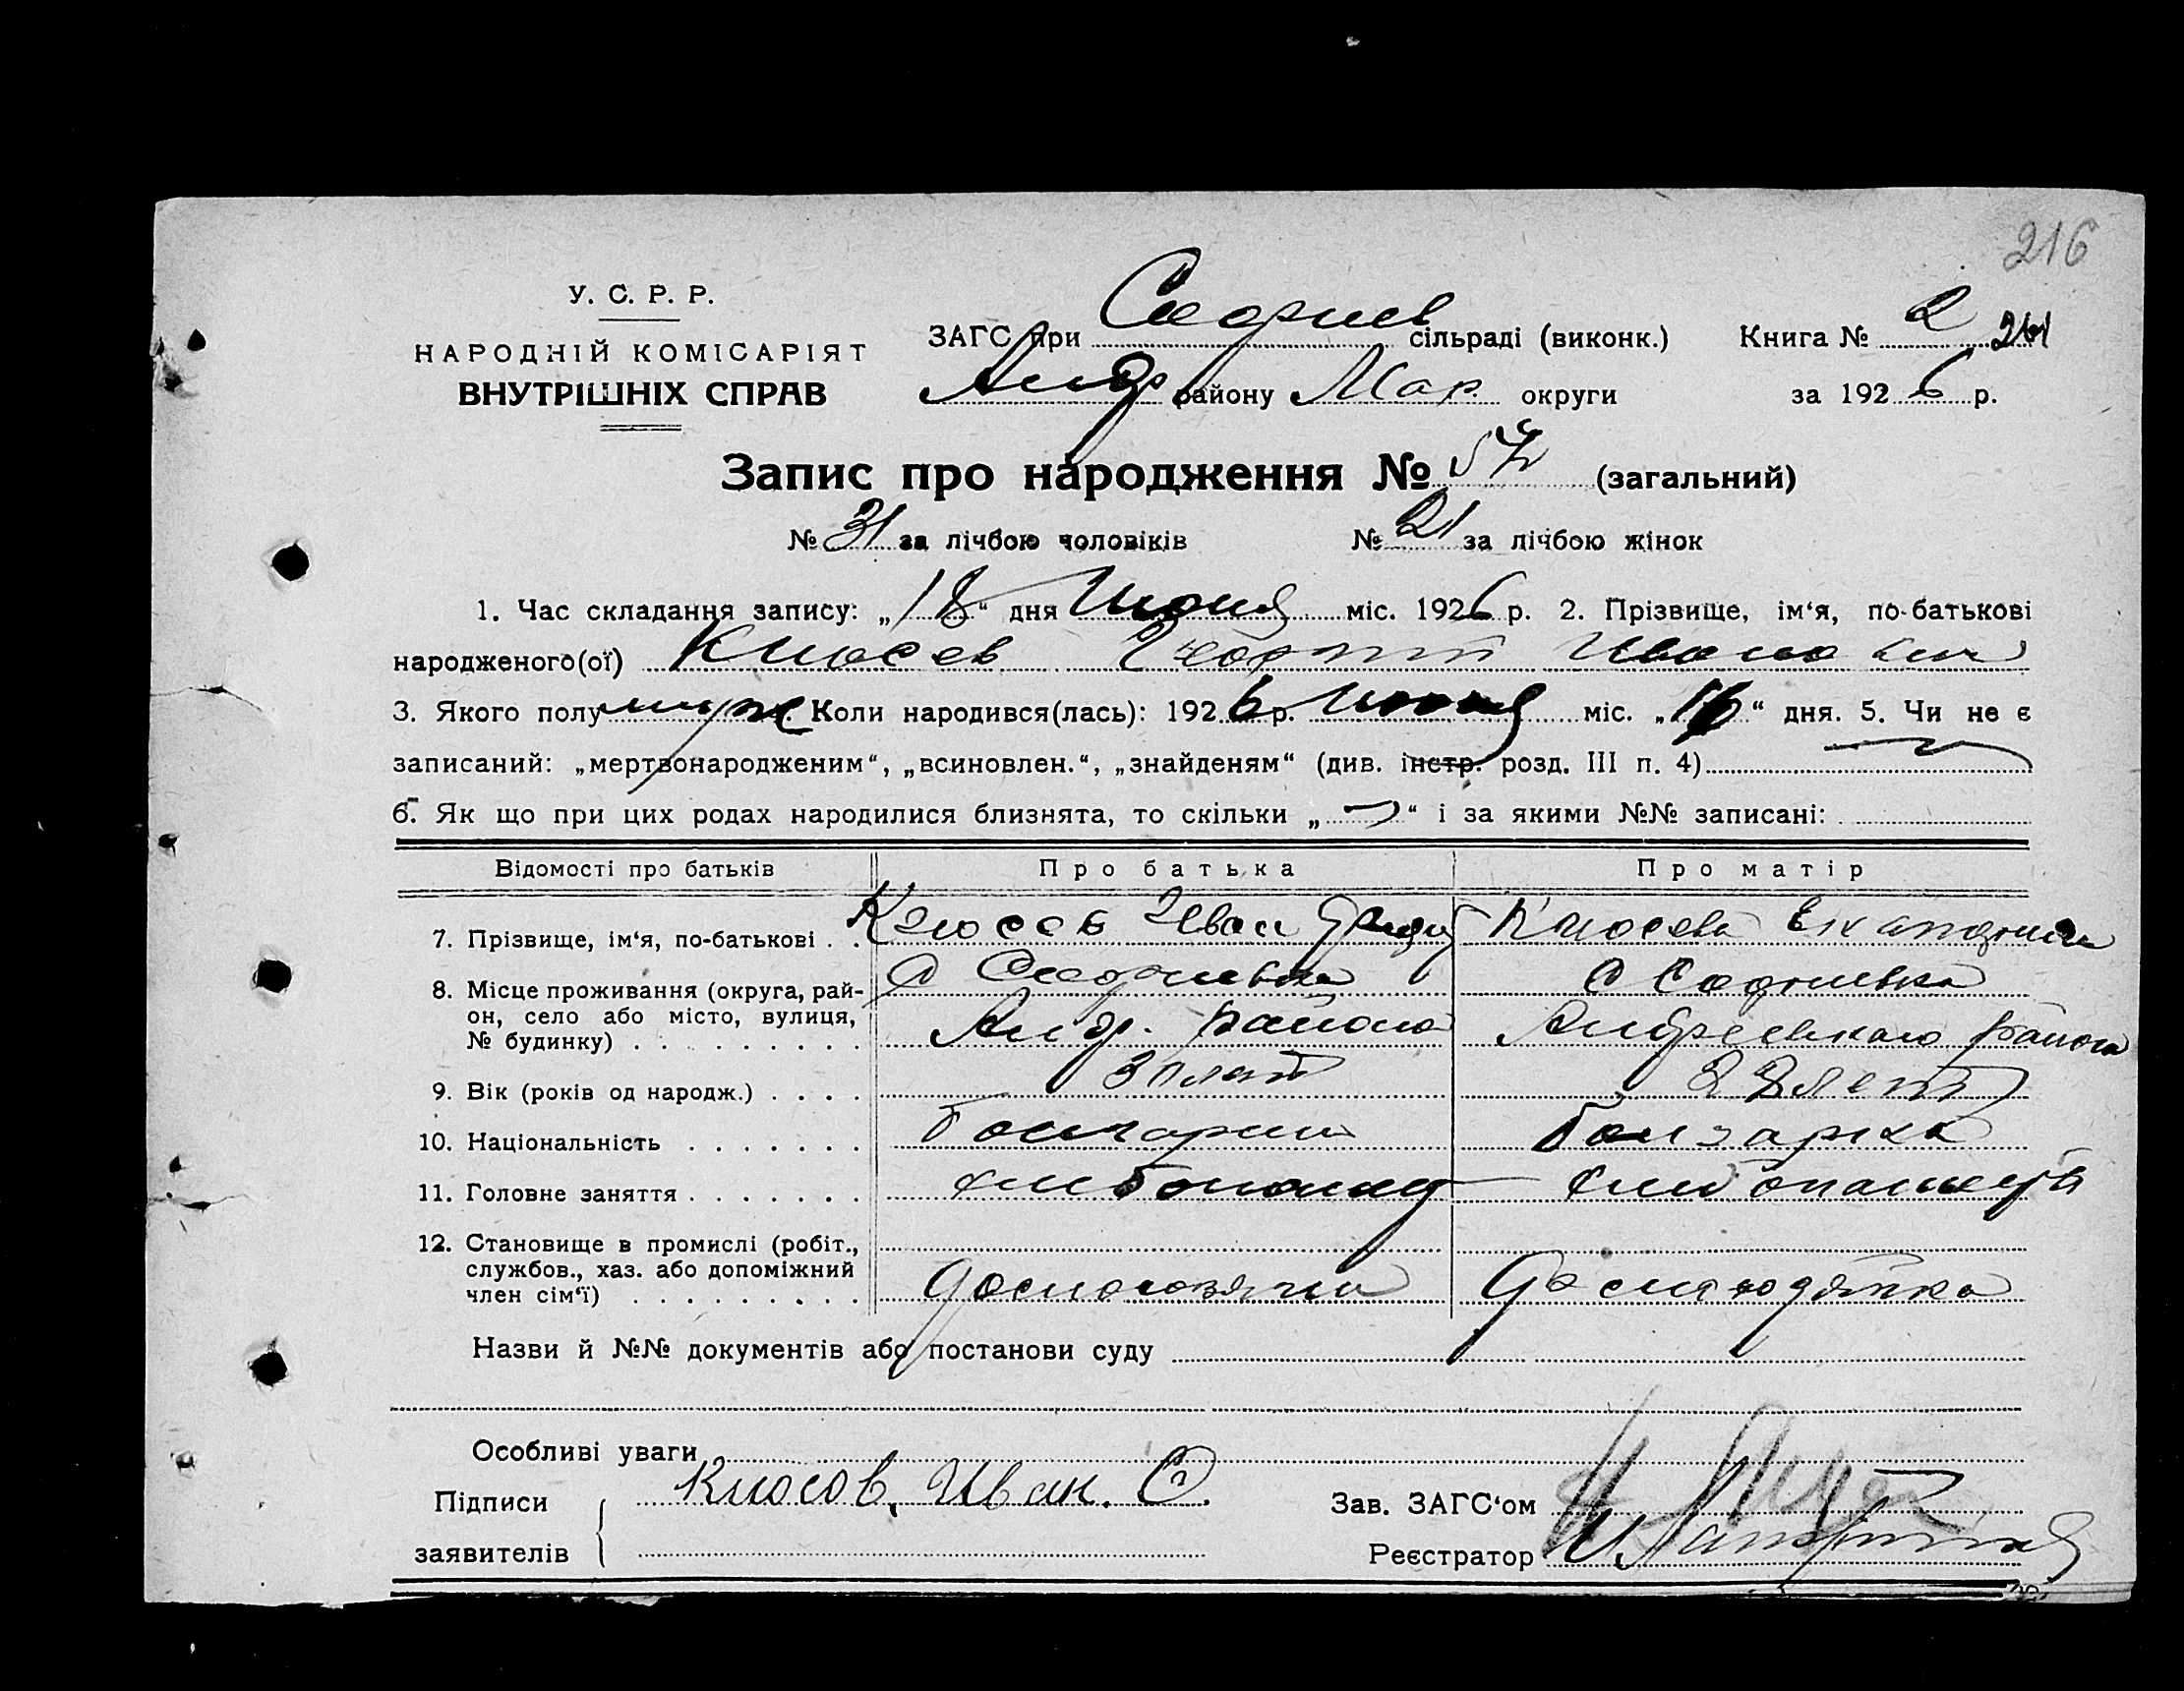 216
У. С. Р. Р.
НАРОДНІЙ КОМІСАРІЯТ
ВНУТРІШНІХ СПРАВ
ЗАГС при Софиев сільраді (виконк.) Книга № 2
Андр району Мар. округи за 1926 р.
Запис про народження № (загальний)
№ 31 за лічбою чоловіків № 21 за лічбою жінок
1. Час складання запису: „18“ дня міс. 1926 р. 2. Прізвище, ім‘я, по-батькові
народженого(ої) Киосев Георгий Иванович
3. Якого полу муж. Коли народився(лась): 1926 р. міс. „16“ дня. 5. Чи не є
записаний: „мертвонародженим“, „всиновлен.“, „знайденям“ (див. інстр. розд. III п. 4)
6. Як що при цих родах народилися близнята, то скільки „ “ і за якими №№ записані:
Відомості про батьків Про батька Про матір
7. Прізвище, ім‘я, по-батькові . . Киосев Иван Киосева Екатерина
8. Місце проживання (округа, рай- с Софиевка с Софиевка
он, село або місто, вулиця,
№ будинку) . . . . . . . . . Андр. района Андреевкаго района
9. Вік (років од народж.) . . . . 30 лет лет
10. Національність . . . . . . . Болгарин Болгарка
11. Головне заняття . . . . . . . хлебопашец хлебопашец
12. Становище в промислі (робіт.,
службов., хаз. або допоміжний
член сім‘ї) . . . . . . . . .
Назви й №№ документів або постанови суду
Особливі уваги
Підписи Киосов, Иван. С.
заявителів
Зав. ЗАГС‘ом
Реєстратор